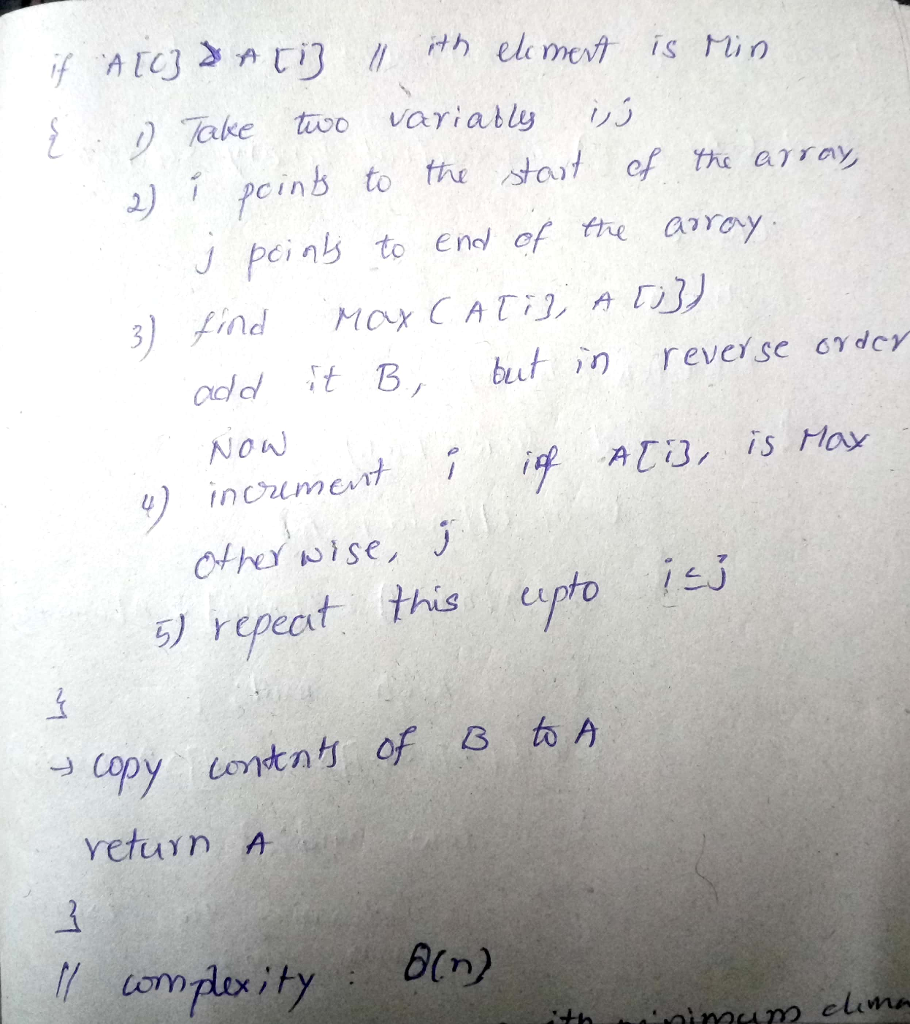 if A[0] > A[i] // ith element is Min
{ 1) Take two variables i,j
2) i points to the start of the array,
j points to end of the array.
3) find Max(A[i], A[j])
add it B, but in reverse order
Now
4) increment i if A[i], is Max
otherwise, j
5) repeat this upto i≤j
}
→ copy contents of B to A
return A
}
// complexity : θ(n)
ith minimum